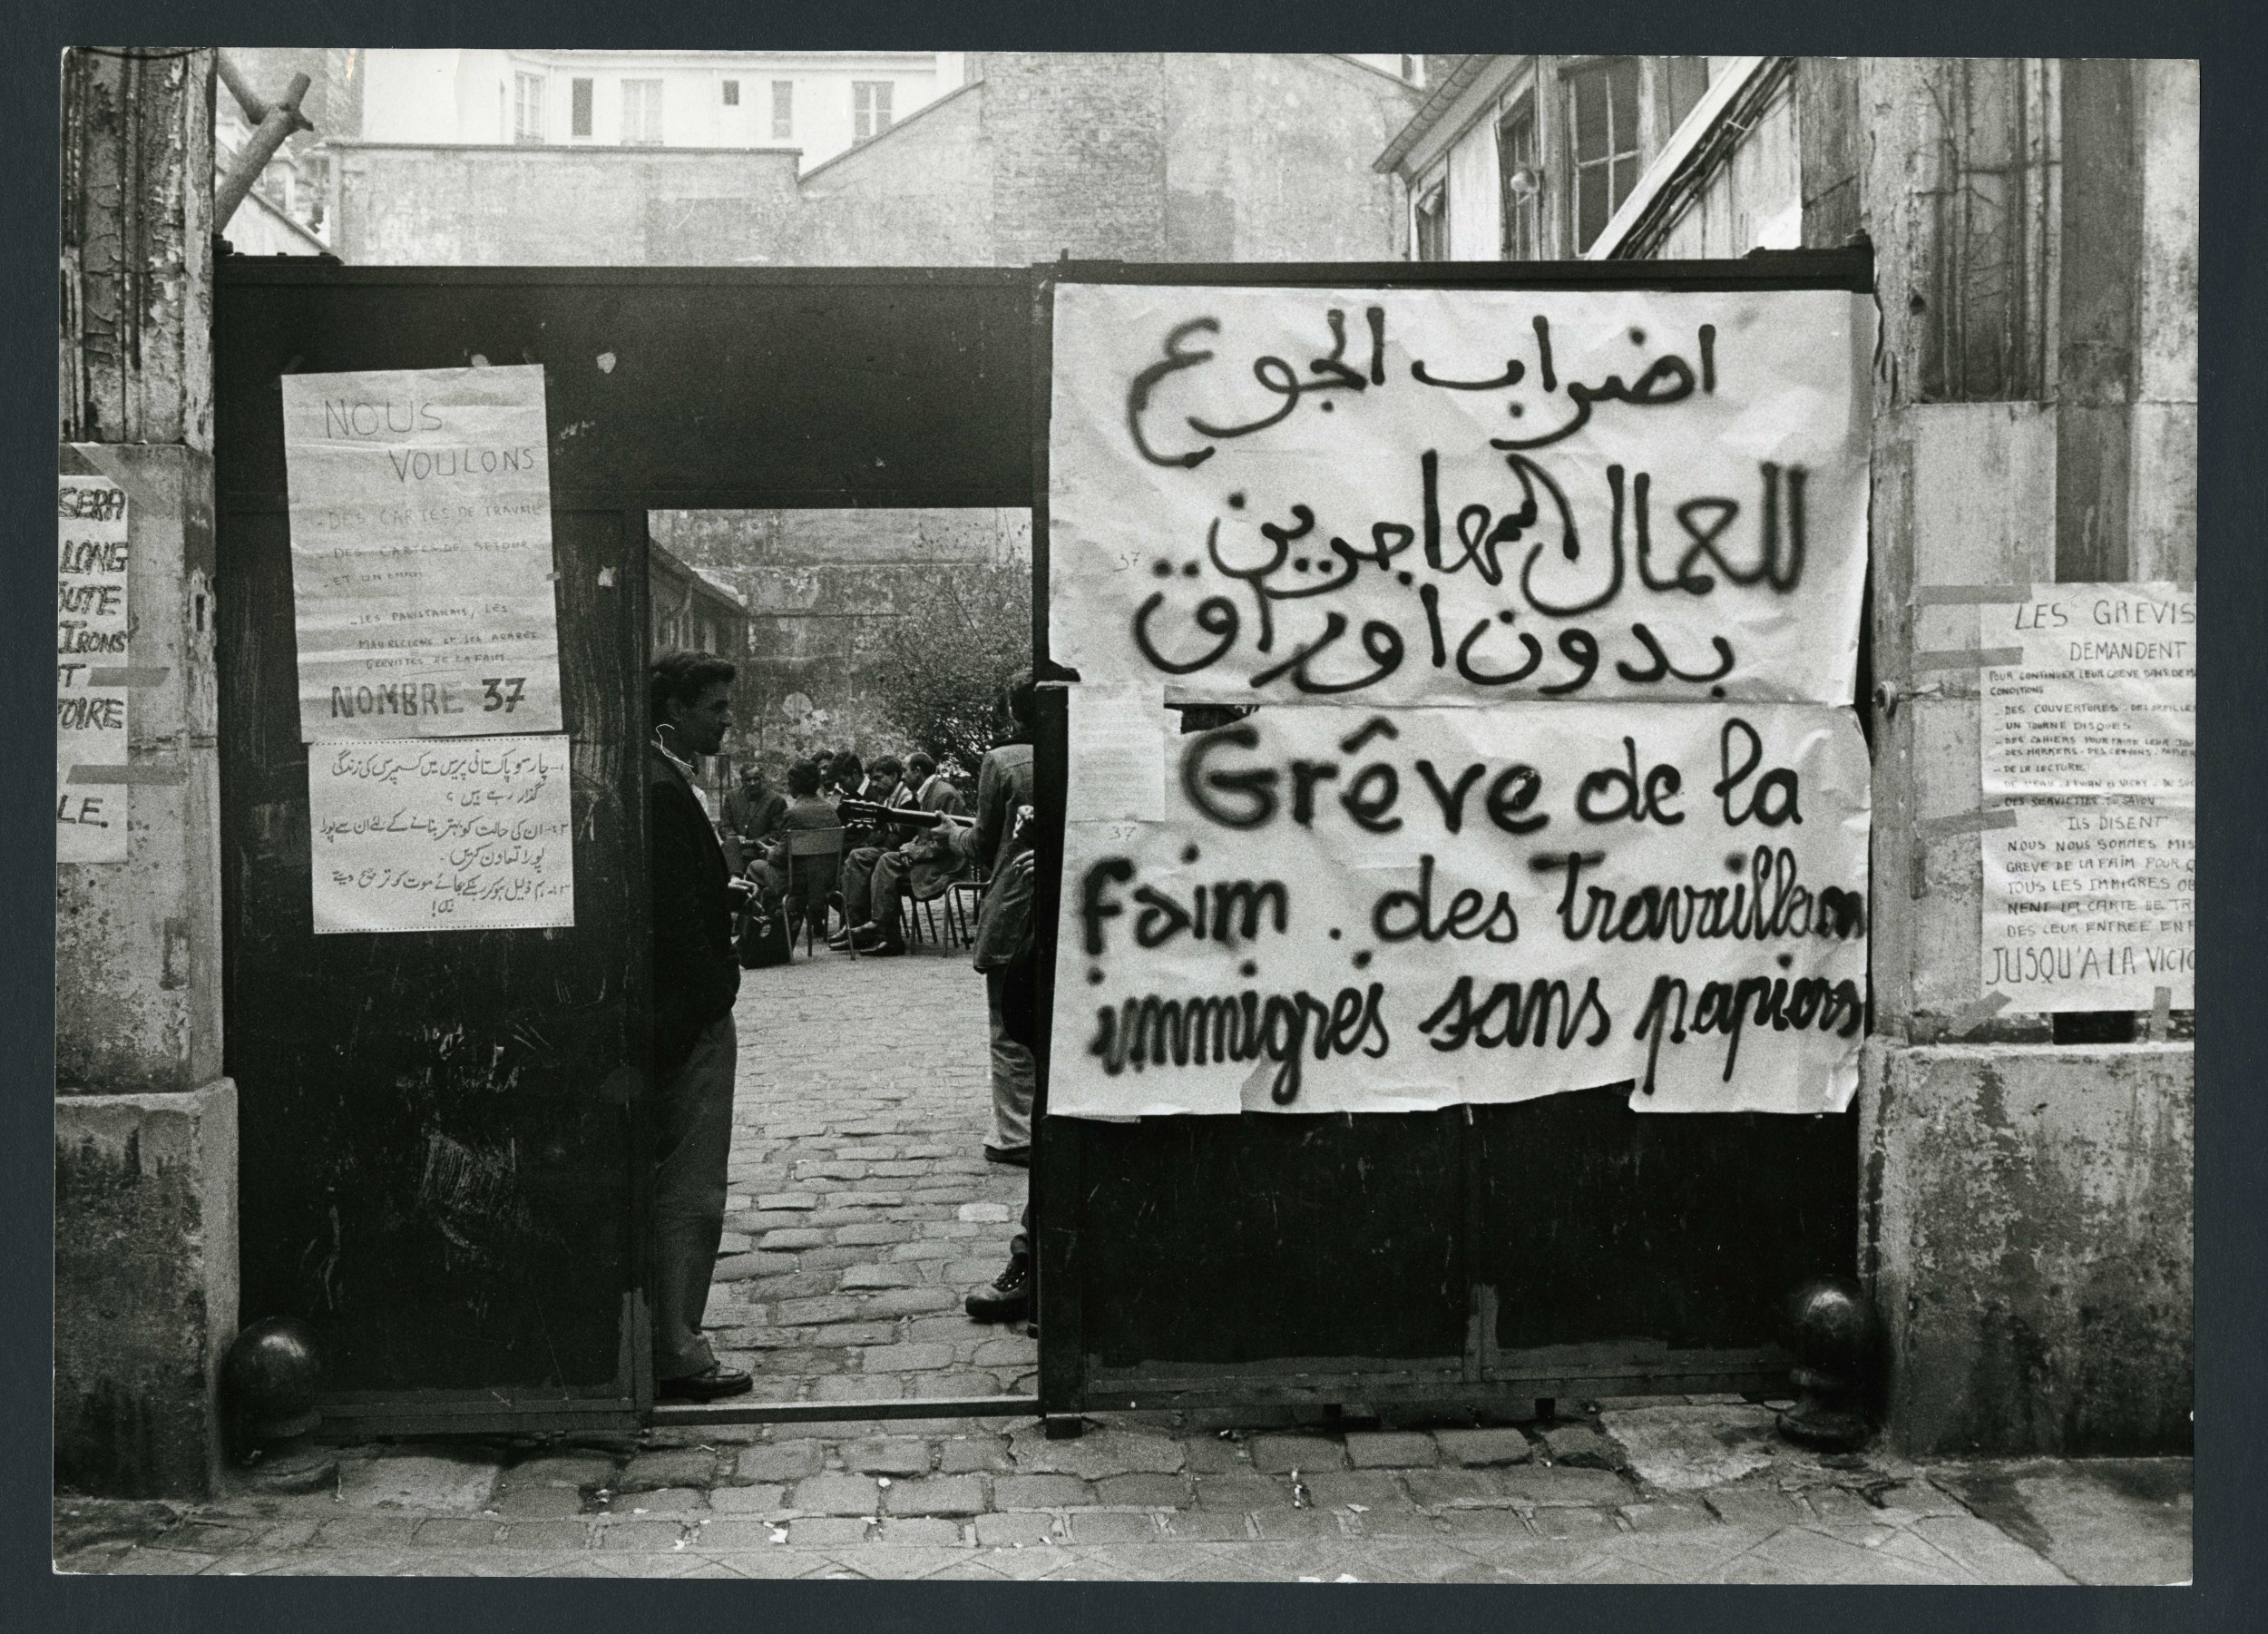 SERA
LONG
OUTE
IRONS
T
TOIRE
LE.
NOUS
VOULONS
- DES CARTES DE TRAVAIL
- DES CARTES DE SEJOUR
- ET UN EMPLOI
- LES PAKISTANAIS, LES
MAURICIENS ET LES ARABES
GREVISTES DE LA FAIM
NOMBRE 37
۱- چار سو پاکستانی پیرس میں کسمپرسی کی زندگی
گذار رہے ہیں ؟
۲- ان کی حالت کو بہتر بنانے کے لئے ان سے پورا
پورا تعاون کریں -
۳- ہم ذلیل ہو کر رہنے کی بجائے موت کو ترجیح دیتے
ہیں!
اضراب الجوع
للعمال المهاجرين
بدون اوراق
37
37
Grève de la
faim . des Travailleurs
immigrés sans papiers
LES GREVIS
DEMANDENT
POUR CONTINUER LEUR GREVE DANS DE
CONDITIONS
- DES COUVERTURES - DES OREILLE
- UN TOURNE DISQUES
- DES CAHIERS POUR FAIRE LEUR JOU
DES MARKERS - DES CRAYONS - PAPIE
- DE LA LECTURE
DE L'EAU - EVIAN OU VICHY - DU SUC
- DES SERVIETTES DU SAVON
ILS DISENT
NOUS NOUS SOMMES MIS
GREVE DE LA FAIM POUR Q
TOUS LES IMMIGRES OB
NENT LA CARTE DE TR
DES LEUR ENTREE EN F
JUSQU'A LA VICTO